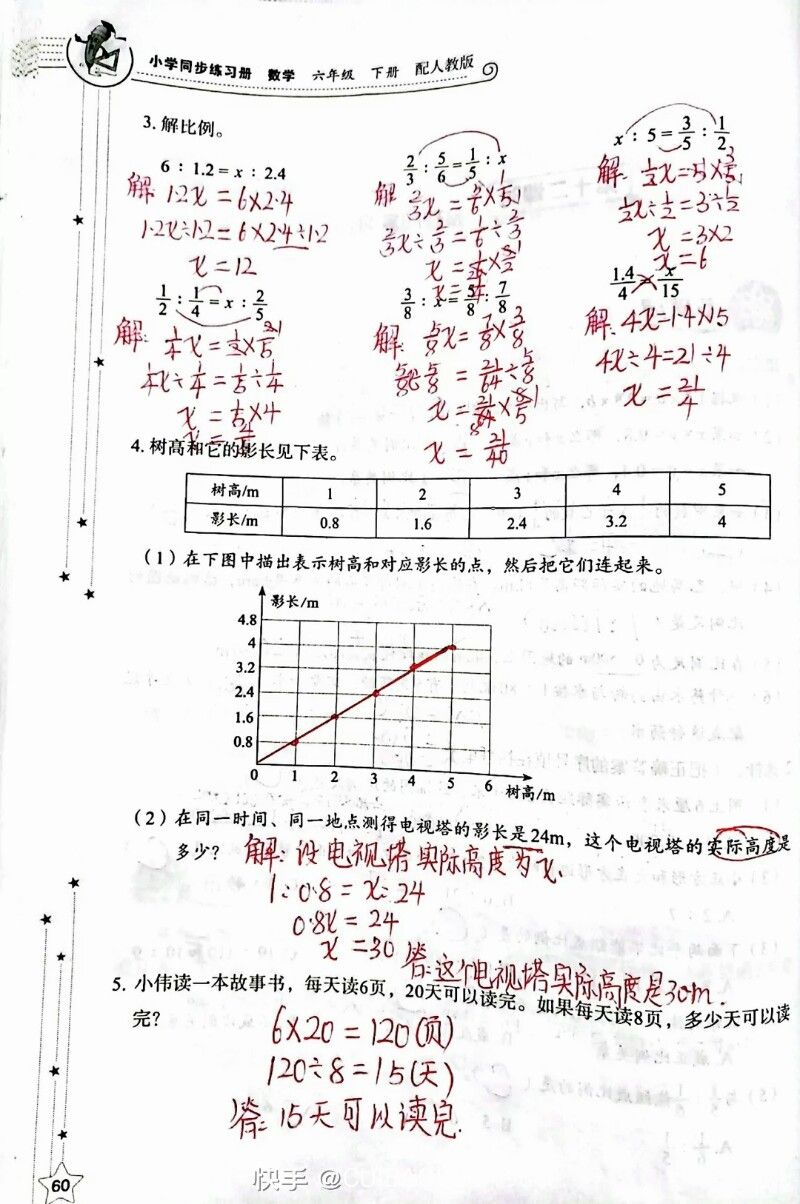 小学同步练习册 数学 六年级 下册 配人教版
3. 解比例。
6 : 1.2 = x : 2.4
解: 1.2x = 6×2.4
1.2x÷1.2 = 6×2.4÷1.2
x = 12
2/3 : 5/6 = 1/5 : x
解: 2/3x = 5/6×1/5
2/3x÷2/3 = 1/6÷2/3
x : 5 = 3/5 : 1/2
解: 1/2x = 5×3/5
1/2x÷1/2 = 3÷1/2
x = 3×2
x = 6
1/2 : 1/4 = x : 2/5
解: 1/4x = 1/2×2/5
1/4x÷1/4 = 1/5÷1/4
x = 1/5×4
x = 4/5
3/8 : x = 5/8 : 7/8
解: 5/8x = 7/8×3/8
5/8x÷5/8 = 21/64÷5/8
x = 21/64×8/5
x = 21/40
1.4/4 = x/15
解: 4x = 1.4×15
4x÷4 = 21÷4
x = 21/4
4. 树高和它的影长见下表。
树高/m 1 2 3 4 5
影长/m 0.8 1.6 2.4 3.2 4
(1) 在下图中描出表示树高和对应影长的点，然后把它们连起来。
影长/m
4.8
4
3.2
2.4
1.6
0.8
0 1 2 3 4 5 6 树高/m
(2) 在同一时间、同一地点测得电视塔的影长是24m，这个电视塔的实际高度是
多少? 解: 设电视塔实际高度为x.
1:0.8 = x:24
0.8x = 24
x = 30
答:这个电视塔实际高度是30m.
5. 小伟读一本故事书，每天读6页，20天可以读完。如果每天读8页，多少天可以读
完?
6×20 = 120(页)
120÷8 = 15(天)
答: 15天可以读完.
60
快手